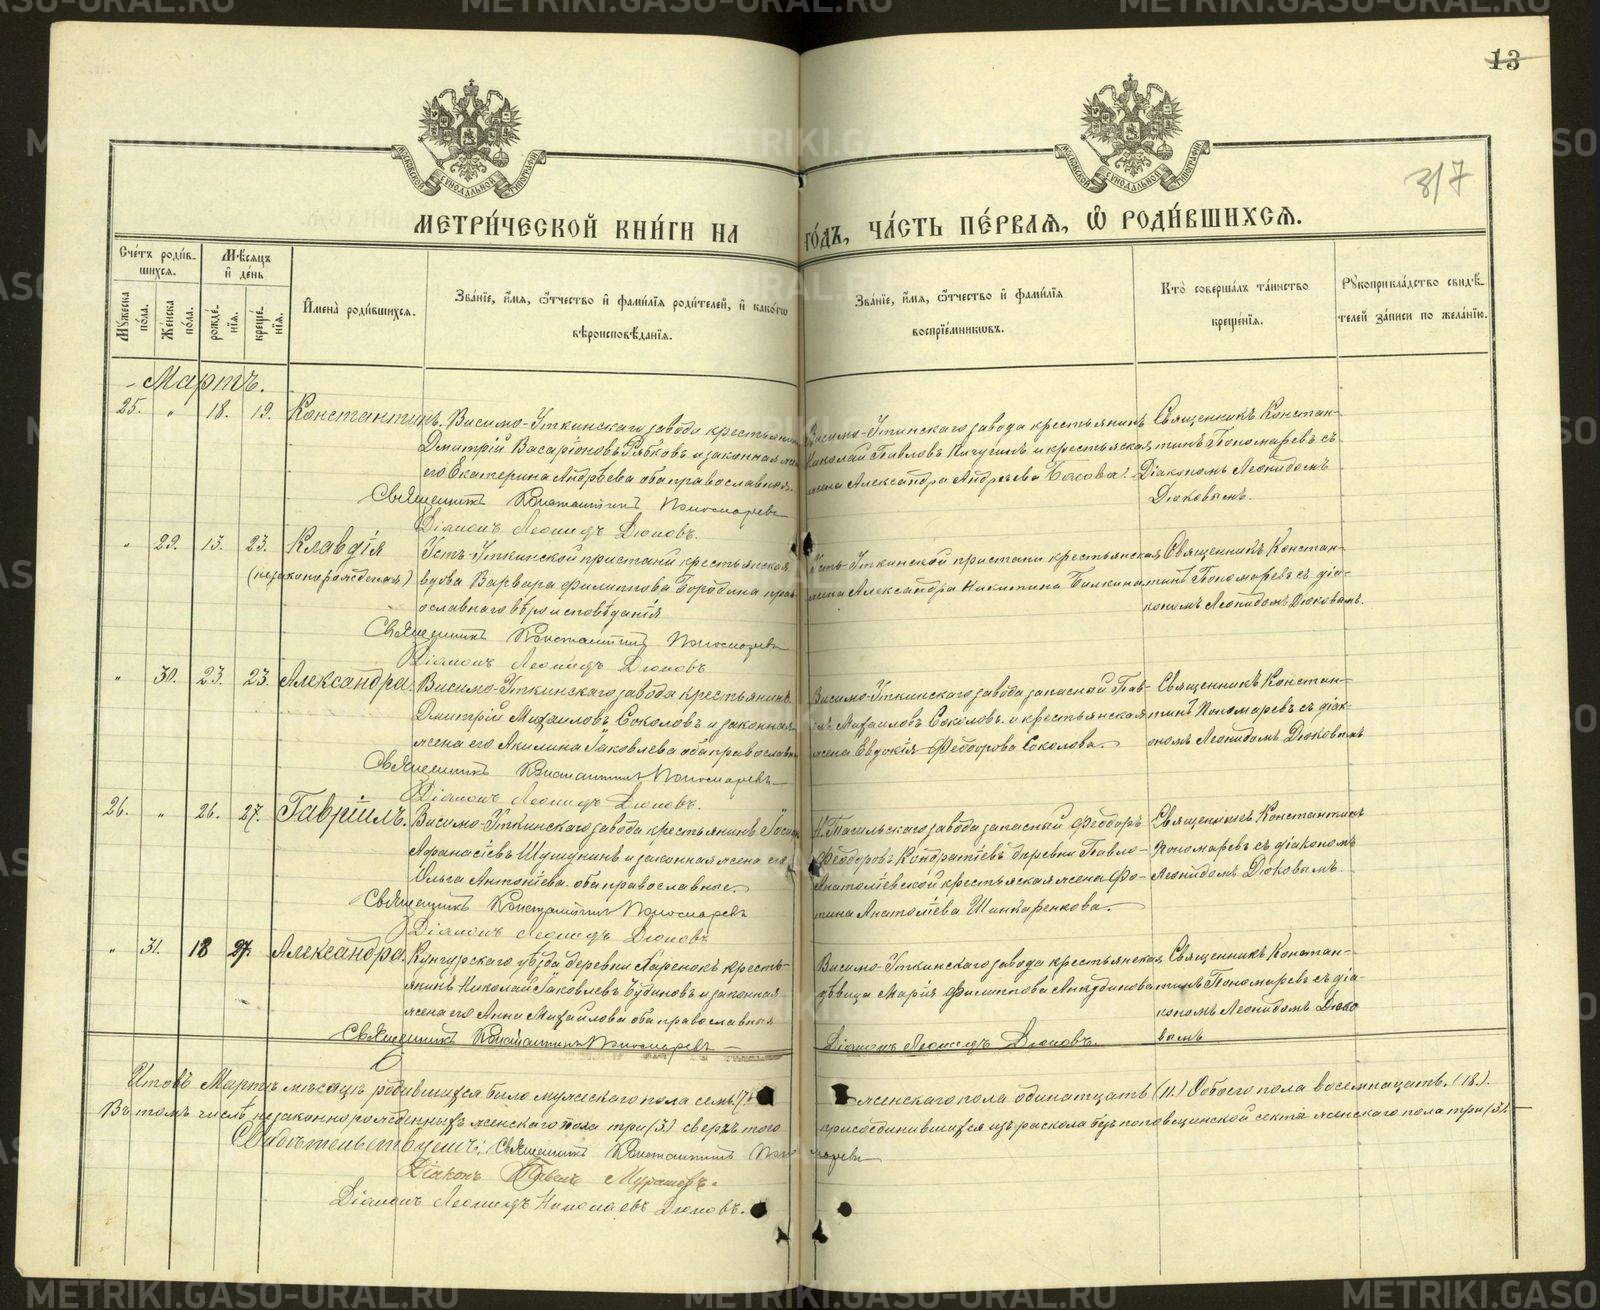 METRIKI.GASO-URAL.RU
13
317
МОСКОВСКОЙ СѴНОДАЛЬНОЙ ТИПОГРАФІИ
МЕТРИ́ЧЕСКОЙ КНИ́ГИ НА ГО́ДЪ, ЧА́СТЬ ПЕ́РВАЯ, Ѡ РОДИ́ВШИХСЯ.
Счетъ родившихся.
Мужеска пола.
Женска пола.
Мѣсяцъ и день
рожденія.
крещенія.
Имена родившихся.
Званіе, имя, отчество и фамилія родителей, и какого вѣроисповѣданія.
Званіе, имя, отчество и фамилія воспріемниковъ.
Кто совершалъ таинство крещенія.
Рукоприкладство свидѣтелей записи по желанію.
Мартъ.
25. „ 18. 19. Константинъ.
Висимо-Уткинскаго завода крестьянинъ
Дмитрій Васаріоновъ Рябковъ и законная жена
его Екатерина Андрѣева оба православные.
Священникъ Константинъ Пономаревъ
Діаконъ Леонидъ Дюковъ.
Висимо-Уткинскаго завода крестьянинъ
Николай Павловъ Кичугинъ и крестьянская
жена Александра Андреева
Священникъ Констан-
тинъ Пономаревъ съ
Діакономъ Леонидомъ
Дюковымъ.
„ 29. 13. 23. Клавдія
(незаконорожденная)
Усть-Уткинской пристани крестьянская
вдова Варвара Филиппова Бородина прав
ославнаго вѣроисповѣданія
Священникъ Константинъ Пономаревъ
Діаконъ Леонидъ Дюковъ
Усть-Уткинской пристани крестьянская
жена Александра Никитина
Священникъ Констан-
тинъ Пономаревъ съ діа-
кономъ Леонидомъ Дюковымъ.
„ 30. 23. 23. Александра.
Висимо-Уткинскаго завода крестьянинъ
Дмитрій Михаиловъ Соколовъ и законная
жена его Акилина Яковлева оба православные
Священникъ Константинъ Пономаревъ
Діаконъ Леонидъ Дюковъ.
Висимо-Уткинскаго завода запасной Пав-
елъ Михаиловъ Соколовъ. и крестьянская
жена Евдокія Феодорова Соколова.
Священникъ Констан-
тинъ Пономаревъ съ діак-
ономъ Леонидомъ Дюковымъ
26. „ 26. 27. Гавріилъ.
Висимо-Уткинскаго завода крестьянинъ
Афанасіевъ Шушунинъ и законная жена его
Ольга Антоніева. оба православные.
Священникъ Константинъ Пономаревъ
Діаконъ Леонидъ Дюковъ
Н. Тагильскаго завода запасный Феодоръ
Феодоровъ Кондратіевъ деревни Павло-
Анатоліевской крестьяская жена Фо-
тина Анатоліева Шинкаренкова.
Священникъ Константинъ
Пономаревъ съ діакономъ
Леонидомъ Дюковымъ.
„ 31. 18 27. Александра.
Кунгурскаго уѣзда деревни Харенокъ кресть-
янинъ Николай Яковлевъ Будиновъ и законная
жена его Анна Михайлова оба православныя
Священникъ Константинъ Пономаревъ
Діаконъ Леонидъ Дюковъ.
Висимо-Уткинскаго завода крестьянская
дѣвица Марія Филиппова
Священникъ Констан-
тинъ Пономаревъ съ діа-
кономъ Леонидомъ Дюко
вымъ
Итого въ Мартѣ мѣсяцѣ родившихся было мужескаго пола семь (7) женскаго пола одинатцать (11) Обоего пола восемнацать. (18.).
Въ томъ числѣ незаконнорожденныхъ женскаго пола три (3.) сверхъ того присоединившихся изъ раскола безпоповщинской секты женскаго пола три (3).
Свидѣтельствуемъ: Священникъ Константинъ Пономаревъ
Діаконъ Павелъ
Діаконъ Леонидъ Николаевъ Дюковъ.